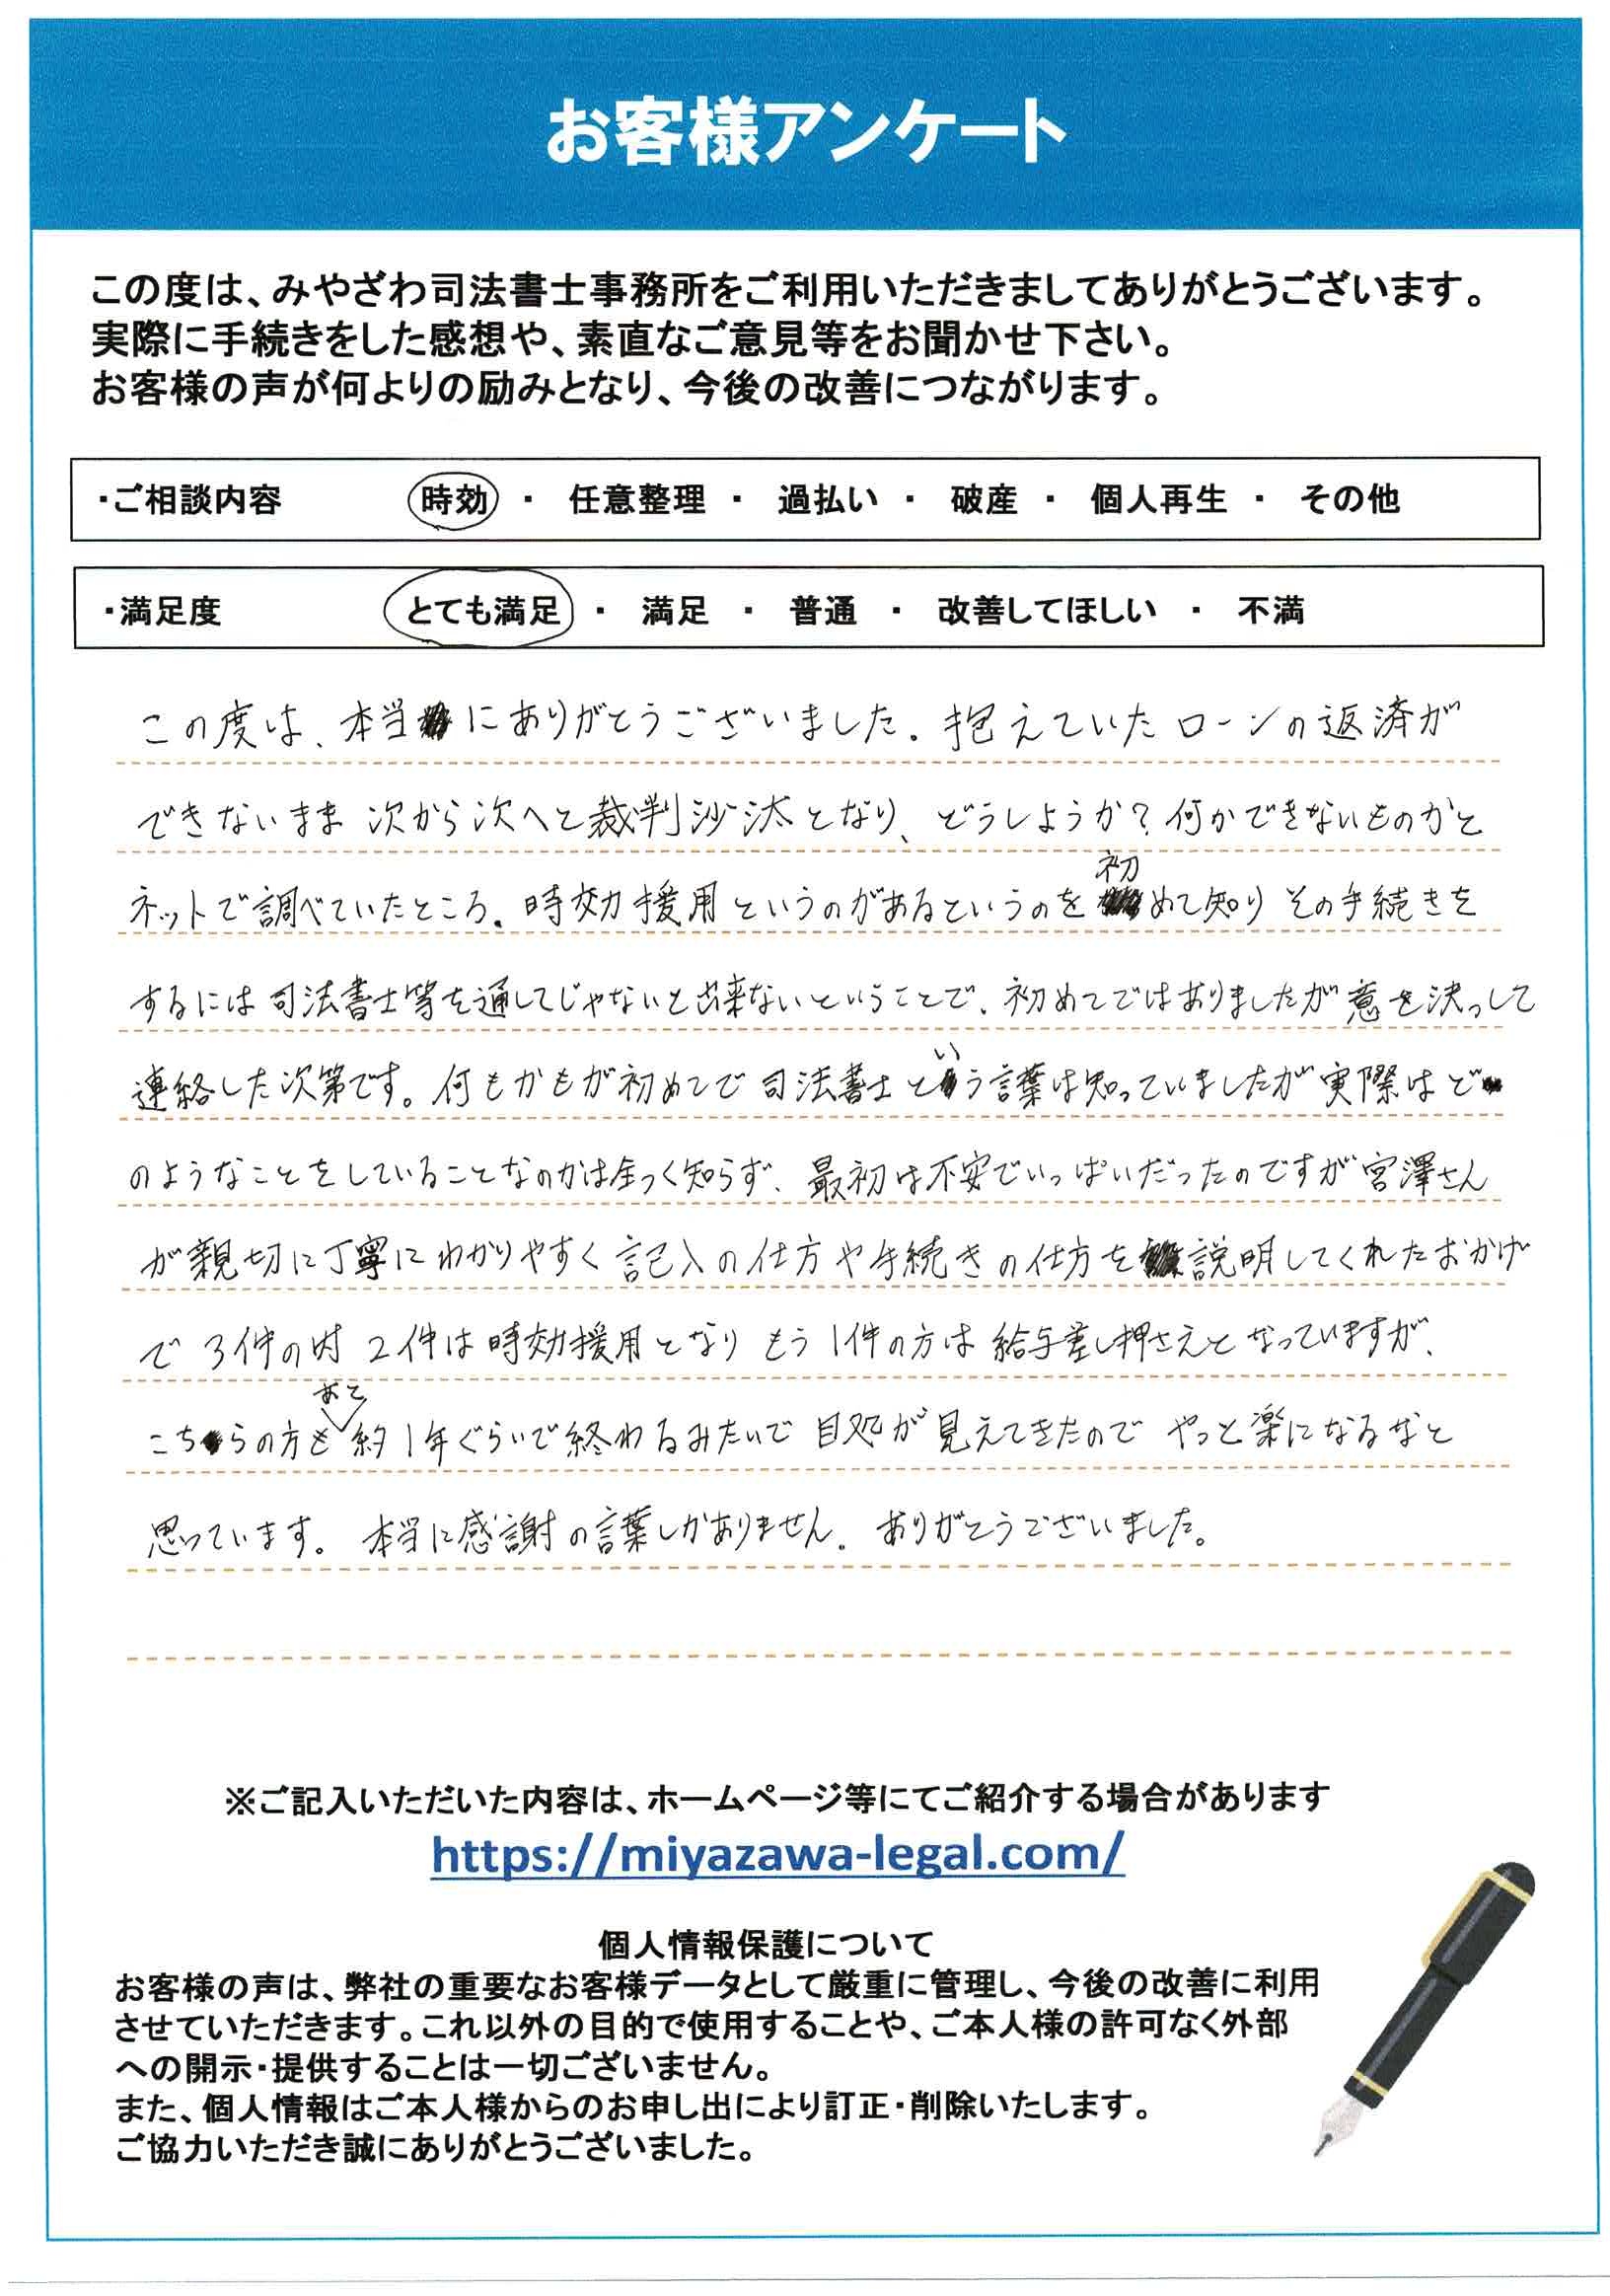 お客様アンケート
この度は、みやざわ司法書士事務所をご利用いただきましてありがとうございます。
実際に手続きをした感想や、素直なご意見等をお聞かせ下さい。
お客様の声が何よりの励みとなり、今後の改善につながります。
・ご相談内容 時効 ・ 任意整理 ・ 過払い ・ 破産 ・ 個人再生 ・ その他
・満足度 とても満足 ・ 満足 ・ 普通 ・ 改善してほしい ・ 不満
この度は、本当にありがとうございました。抱えていたローンの返済が
できないまま次から次へと裁判沙汰となり、どうしようか?何かできないものかと
ネットで調べていたところ。時効援用というのがあるというのを初めて知りその手続きを
するには司法書士等を通してじゃないと出来ないということで、初めてではありましたが意を決っして
連絡した次第です。何もかもが初めてで司法書士という言葉は知っていましたが実際はど
のようなことをしていることなのかは全っく知らず、最初は不安でいっぱいだったのですが宮澤さん
が親切に丁寧にわかりやすく記入の仕方や手続きの仕方を説明してくれたおかげ
で3件の内2件は時効援用となりもう1件の方は給与差し押さえとなっていますが、
こちらの方もあと約1年ぐらいで終わるみたいで目処が見えてきたのでやっと楽になるなと
思っています。本当に感謝の言葉しかありません。ありがとうございました。
※ご記入いただいた内容は、ホームページ等にてご紹介する場合があります
https://miyazawa-legal.com/
個人情報保護について
お客様の声は、弊社の重要なお客様データとして厳重に管理し、今後の改善に利用
させていただきます。これ以外の目的で使用することや、ご本人様の許可なく外部
への開示・提供することは一切ございません。
また、個人情報はご本人様からのお申し出により訂正・削除いたします。
ご協力いただき誠にありがとうございました。